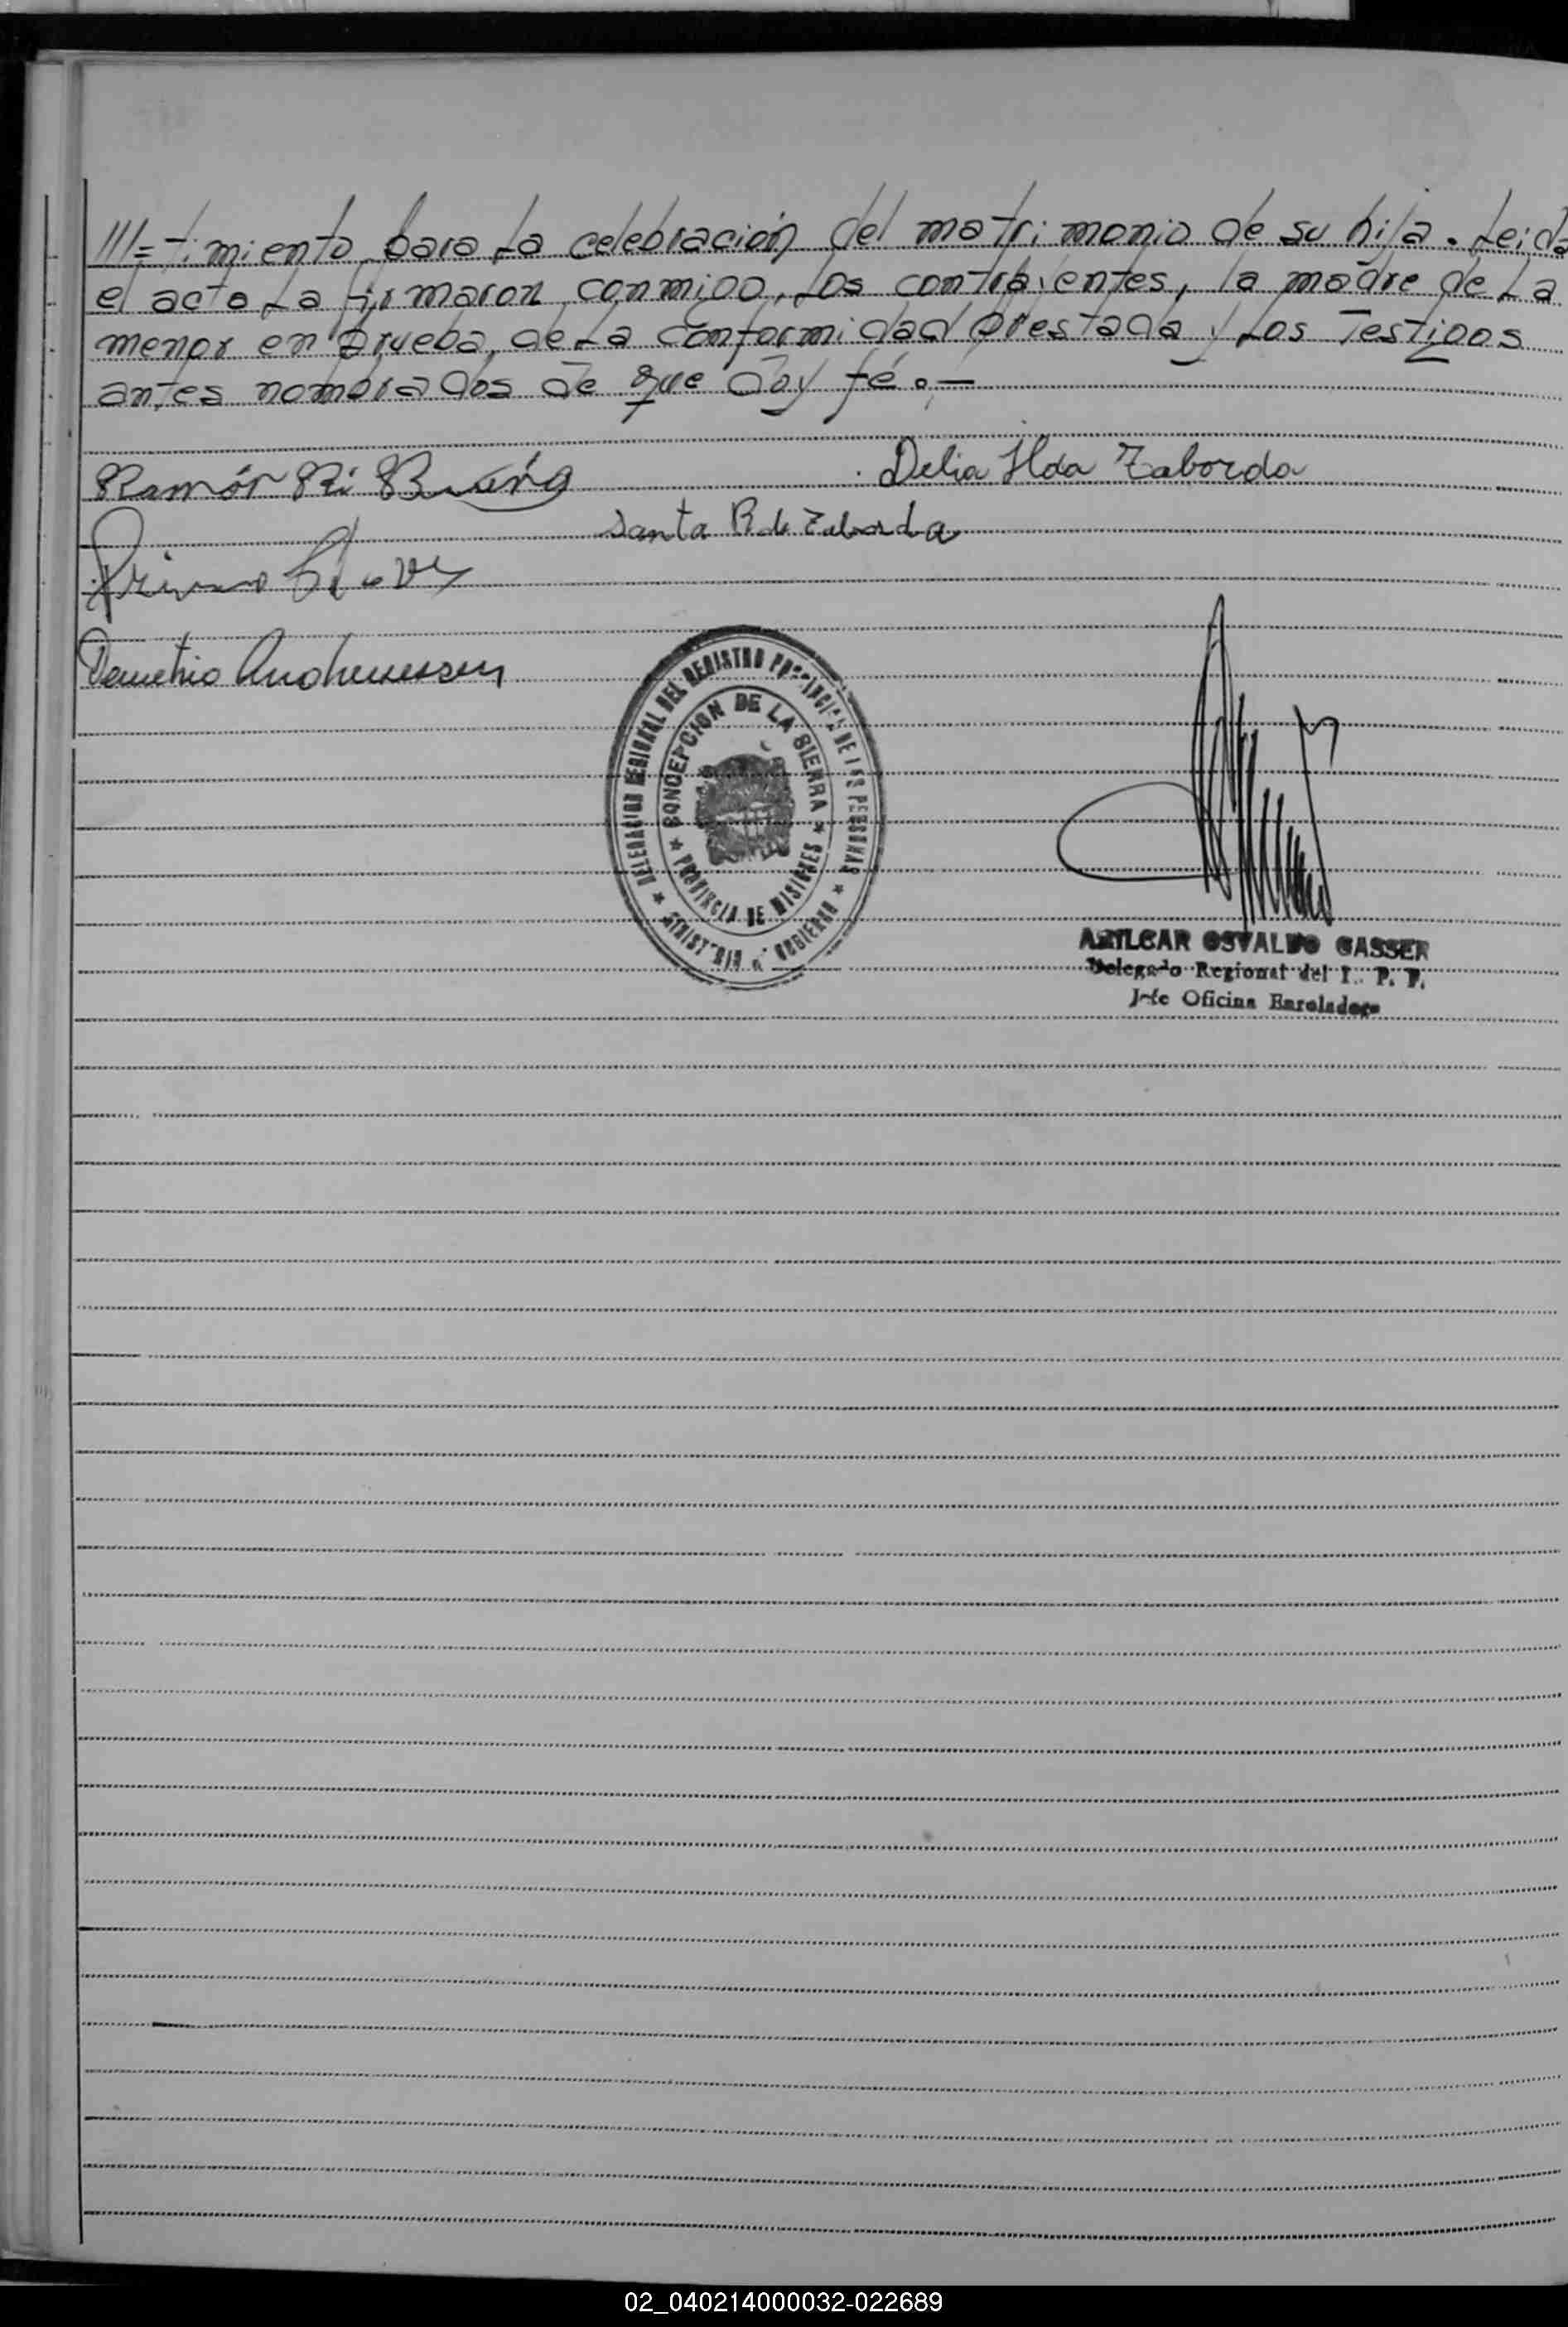 ///=timiento para La celebración del matrimonio de su hija. Leida
el acta La firmaron conmigo, Los contraientes, la madre de La
menor en prueba de La conformidad prestada y Los Testigos
antes nombrados de que doy fé.-
Ramón
Delia Ilda Taborda
Santa R. de Taborda
Demetrio
DELEGACION REGIONAL DEL REGISTRO PROVINCIAL DE LAS PERSONAS
CONCEPCION DE LA SIERRA
PROVINCIA DE MISIONES
MINISTERIO DE GOBIERNO
AMILCAR OSVALDO GASSER
Delegado Regional del
Jefe Oficina Enroladora
02_040214000032-022689